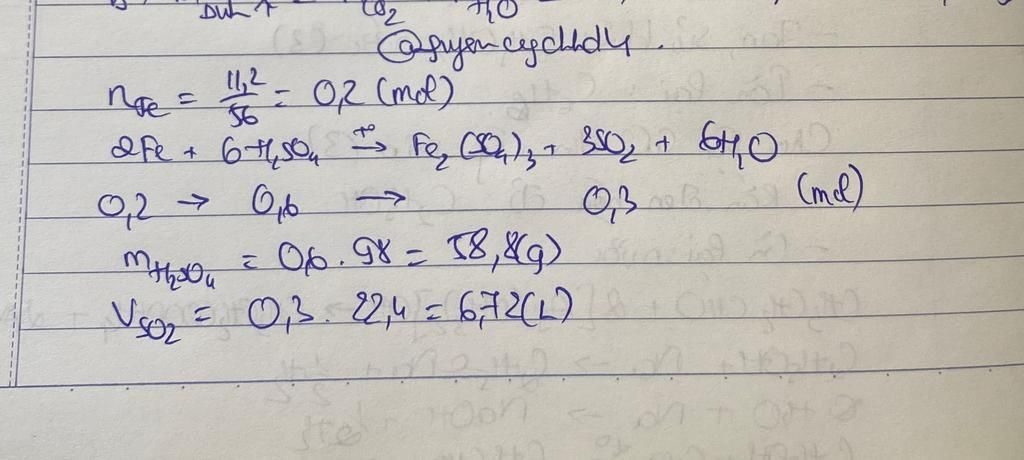 CO2 H2O
@guyencgchhd4.
nFe = 11,2/56 = 0,2 (mol)
2Fe + 6H2SO4 t° → Fe2(SO4)3 + 3SO2 + 6H2O
0,2 → 0,6 → 0,3 (mol)
mH2SO4 = 0,6 . 98 = 58,8(g)
VSO2 = 0,3 . 22,4 = 6,72(L)